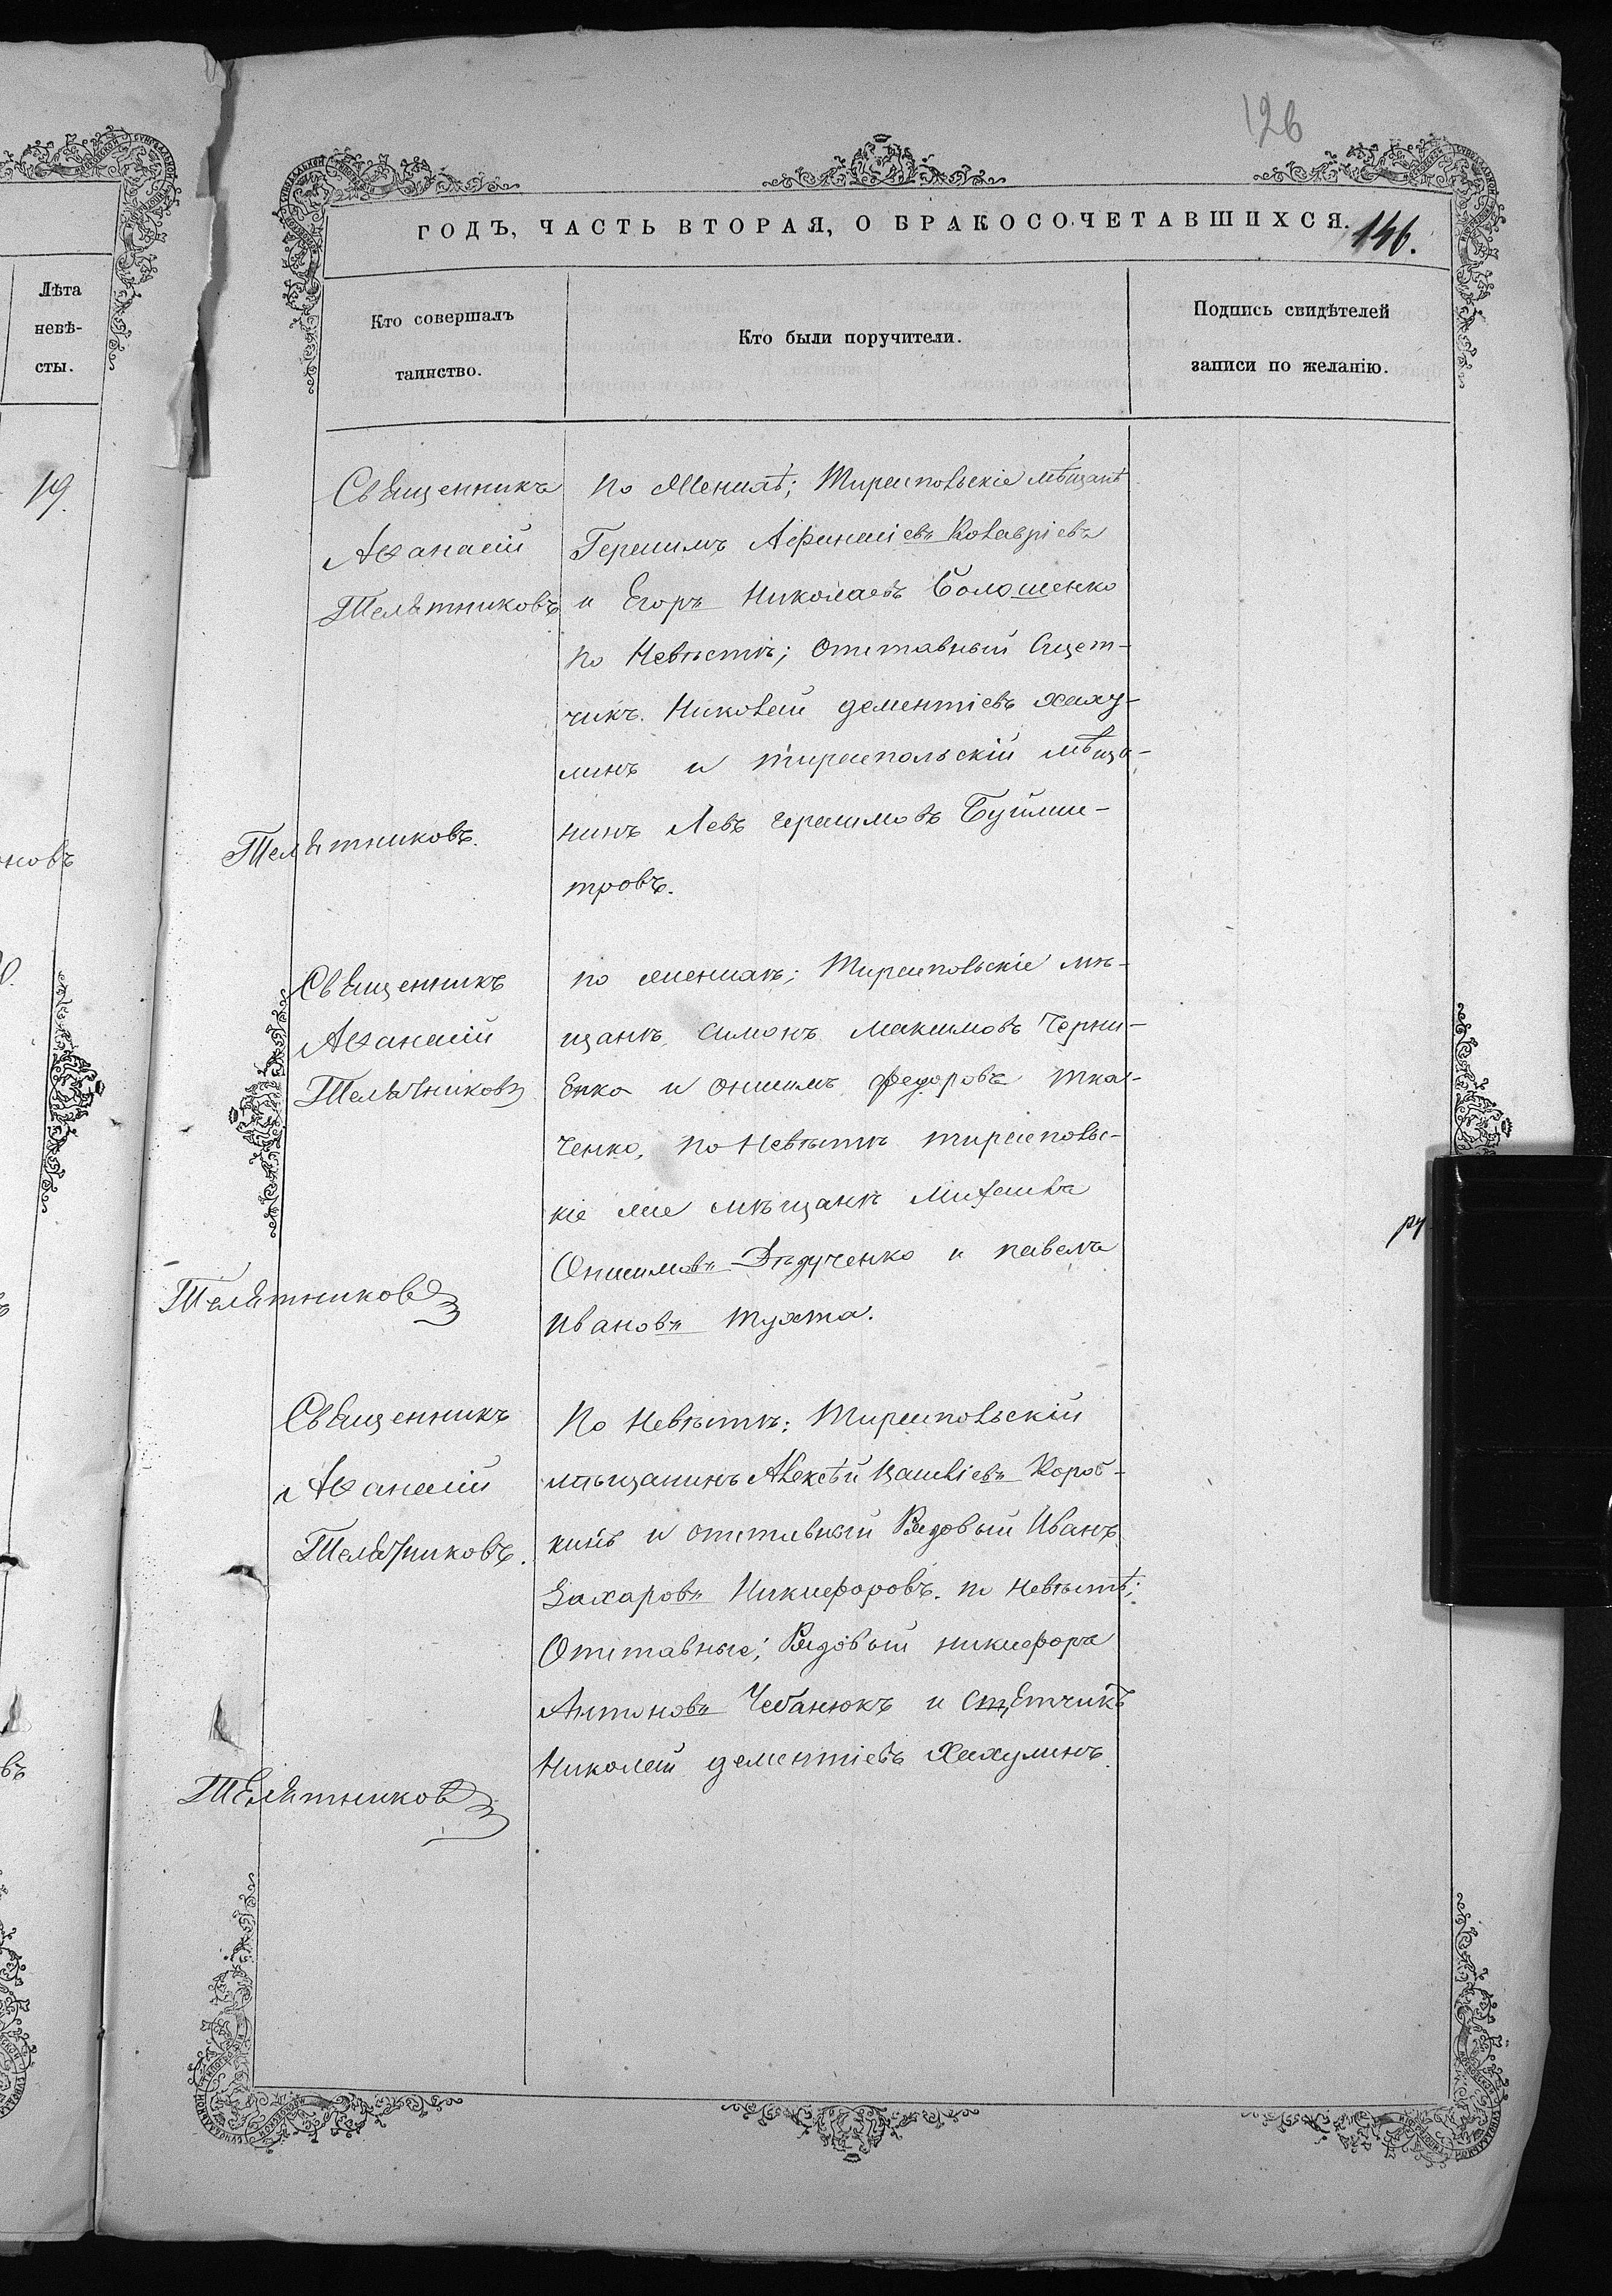 126
ГОДЪ, ЧАСТЬ ВТОРАЯ, О БРАКОСОЧЕТАВШИХСЯ.
146.
Лѣта
невѣ-
сты.
Кто совершалъ
таинство.
Кто были поручители.
Подпись свидѣтелей
записи по желанію.
19.
новъ
Священникъ
Аѳанасій
Телятниковъ
По Женихѣ; Тираспольскіе мѣщанѣ
Герасимъ Афанасіевъ
и Егоръ Николаевъ Болошенко
по Невѣстѣ; Отставный
чикъ. Николай дементіевъ Хаху-
линъ и тираспольскій мѣща-
нинъ Левъ герасимовъ
тровъ.
Телятниковъ.
Священникъ
Аѳанасій
Телятниковъ
по женихѣ; Тираспольскіе мѣ-
щанѣ Симонъ Максимовъ Черни-
Енко и онисимъ федоровъ тка-
ченко, по Невѣстѣ тирасполь-
кіе мѣщанѣ Михаилъ
Онисимовъ Дѣдученко и павелъ
Ивановъ Тухта.
Телятниковъ
ру
Священникъ
Аѳанасій
Телятниковъ.
По Невѣстѣ: Тираспольскій
мѣщанинъ Алексѣй Короб-
кинъ и отставный Рядовый Иванъ
Захаровъ Никифоровъ. по Невѣстѣ;
Отставные; Рядовый никифоръ
Антоновъ Чебанюкъ и
Николай дементіевъ Хахулинъ.
Телятниковъ
въ